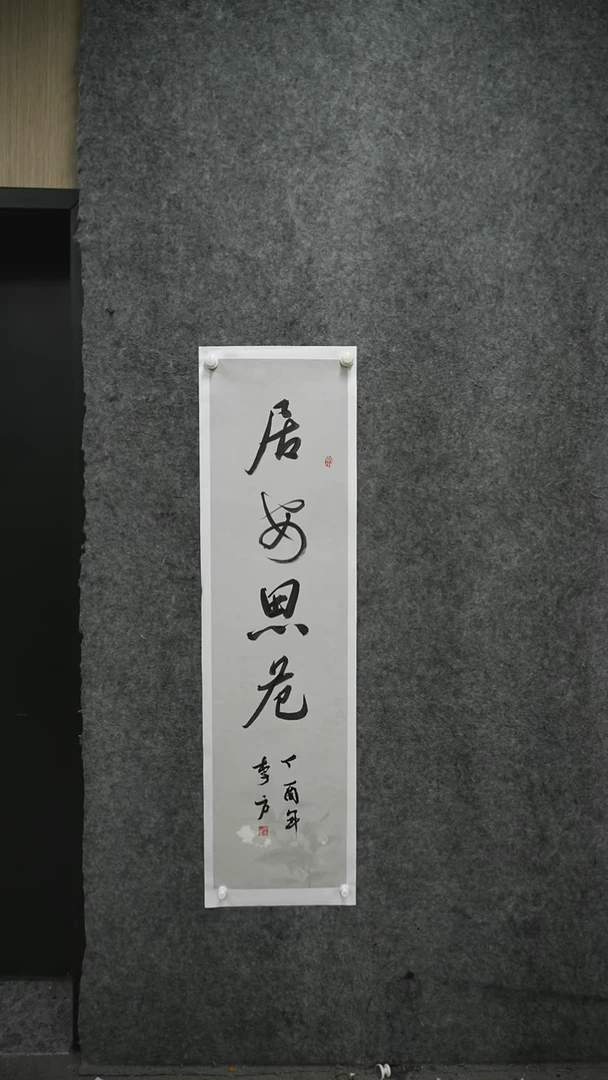 居安思危
丁酉年
李方